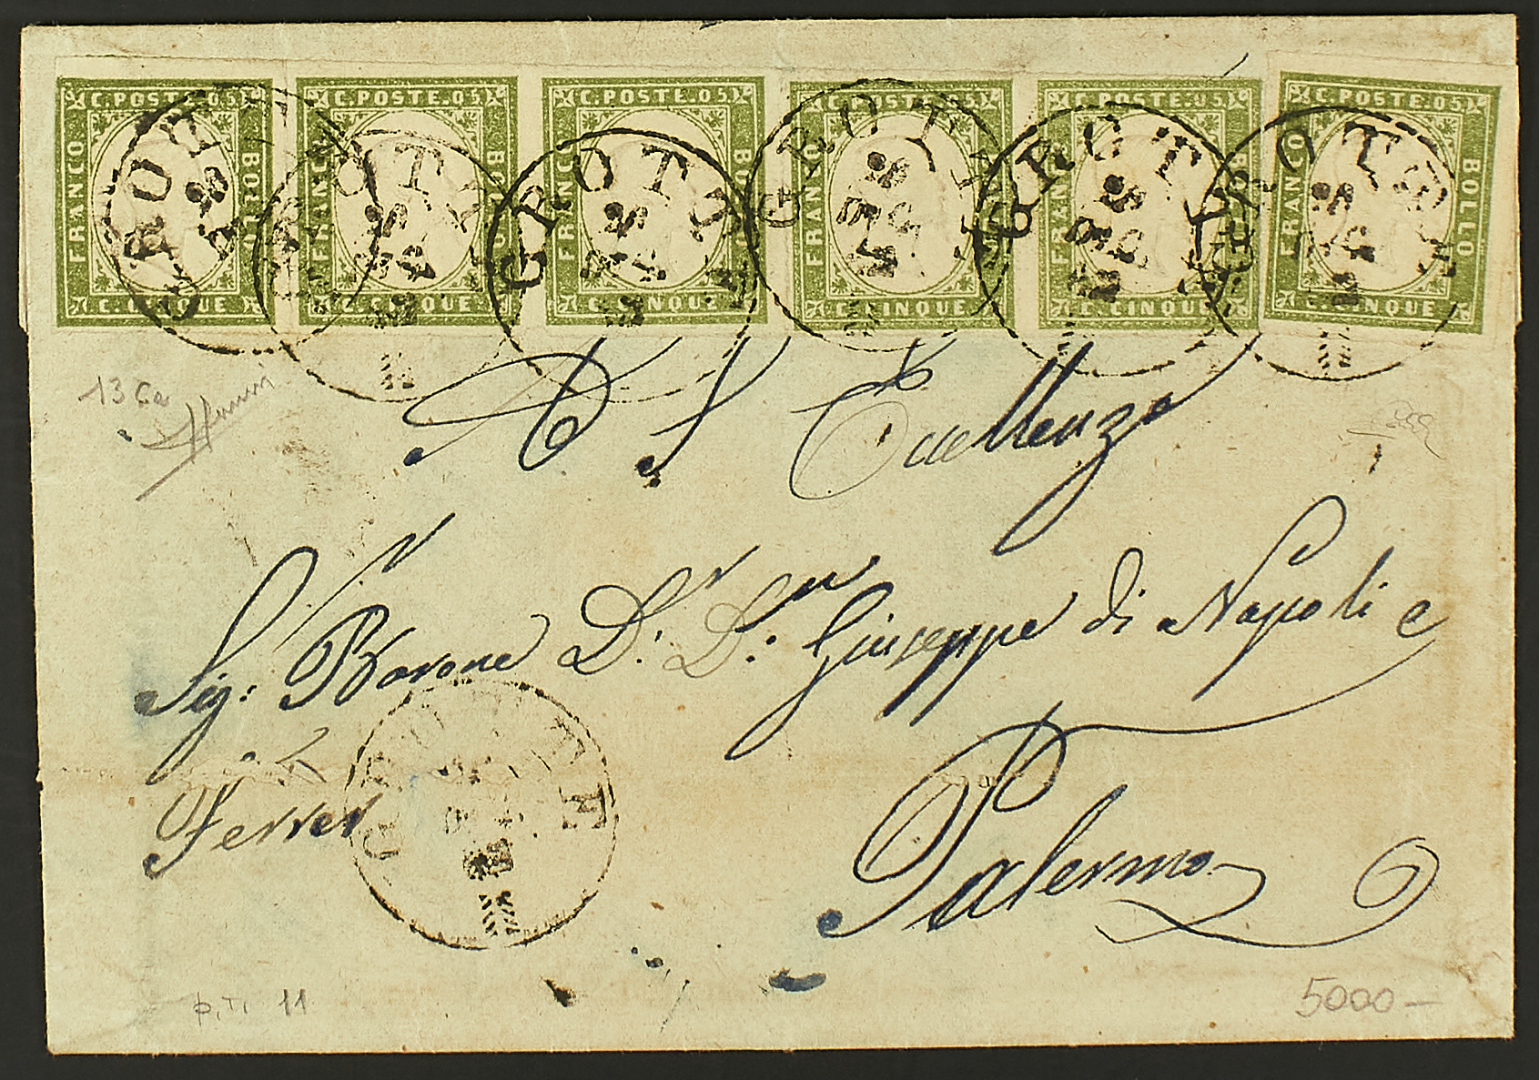 C. POSTE. 05 C. POSTE. 05 C. POSTE. 05 C. POSTE. 05 C. POSTE. 05 C. POSTE. 05
FRANCO BOLLO FRANCO BOLLO FRANCO BOLLO FRANCO BOLLO FRANCO BOLLO FRANCO BOLLO
C. CINQUE C. CINQUE C. CINQUE C. CINQUE C. CINQUE C. CINQUE
GROTTE GROTTE GROTTE GROTTE GROTTE GROTTE
13 Ca
A S Eccellenza
Sig: Barone D. D. Giuseppe di Napoli e
Ferrer
GROTTE
Palermo
p.ti 11
5000—